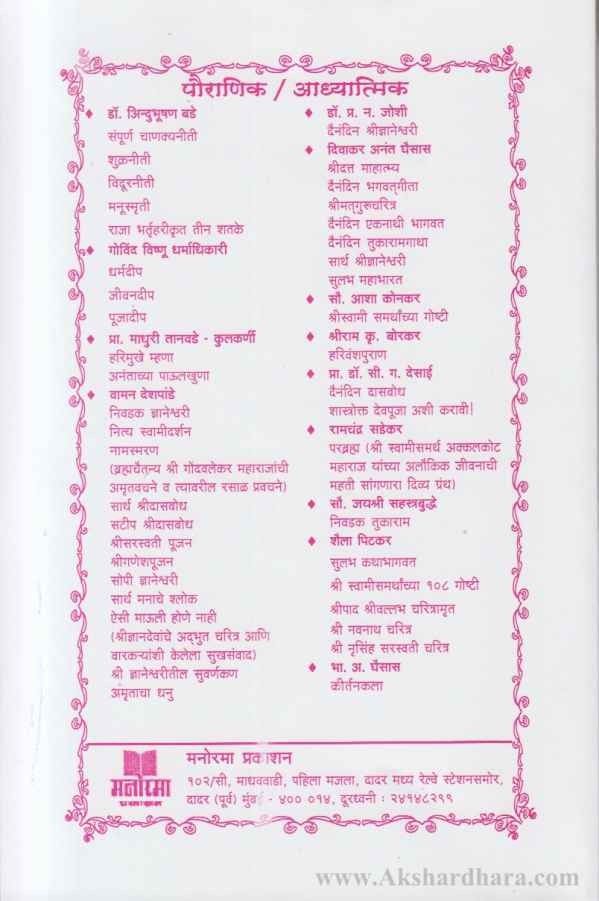 पौराणिक / आध्यात्मिक
♦ डॉ. अिन्दुभूषण बडे
संपूर्ण चाणक्यनीती
शुक्रनीती
विदूरनीती
मनूस्मृती
राजा भर्तृहरीकृत तीन शतके
♦ गोविंद विष्णू धर्माधिकारी
धर्मदीप
जीवनदीप
पूजादीप
♦ प्रा. माधुरी तानवडे - कुलकर्णी
हरिमुखे म्हणा
अनंताच्या पाऊलखुणा
♦ वामन देशपांडे
निवडक ज्ञानेश्वरी
नित्य स्वामीदर्शन
नामस्मरण
(ब्रह्मचैतन्य श्री गोंदवलेकर महाराजांची
अमृतवचने व त्यावरील रसाळ प्रवचने)
सार्थ श्रीदासबोध
सटीप श्रीदासबोध
श्रीसरस्वती पूजन
श्रीगणेशपूजन
सोपी ज्ञानेश्वरी
सार्थ मनाचे श्लोक
ऐसी माऊली होणे नाही
(श्रीज्ञानदेवांचे अद्‌भुत चरित्र आणि
वारकऱ्यांशी केलेला सुखसंवाद)
श्री ज्ञानेश्वरीतील सुवर्णकण
अमृताचा धनु
♦ डॉ. प्र. न. जोशी
दैनंदिन श्रीज्ञानेश्वरी
♦ दिवाकर अनंत घैसास
श्रीदत्त माहात्म्य
दैनंदिन भगवत्‌गीता
श्रीमत्‌गुरुचरित्र
दैनंदिन एकनाथी भागवत
दैनंदिन तुकारामगाथा
सार्थ श्रीज्ञानेश्वरी
सुलभ महाभारत
♦ सौ. आशा कोनकर
श्रीस्वामी समर्थांच्या गोष्टी
♦ श्रीराम कृ. बोरकर
हरिवंशपुराण
♦ प्रा. डॉ. सी. ग. देसाई
दैनंदिन दासबोध
शास्त्रोक्त देवपूजा अशी करावी!
♦ रामचंद्र सडेकर
परब्रह्म (श्री स्वामीसमर्थ अक्कलकोट
महाराज यांच्या अलौकिक जीवनाची
महती सांगणारा दिव्य ग्रंथ)
♦ सौ. जयश्री सहस्त्रबुद्धे
निवडक तुकाराम
♦ शैला पिटकर
सुलभ कथाभागवत
श्री स्वामीसमर्थांच्या १०८ गोष्टी
श्रीपाद श्रीवल्लभ चरित्रामृत
श्री नवनाथ चरित्र
श्री नृसिंह सरस्वती चरित्र
♦ भा. अ. घैसास
कीर्तनकला
मनोरमा
प्रकाशन
मनोरमा प्रकाशन
१०२/सी, माधववाडी, पहिला मजला, दादर मध्य रेल्वे स्टेशनसमोर,
दादर (पूर्व) मुंबई - ४०० ०१४, दूरध्वनी : २४१४८२९९
www.Akshardhara.com